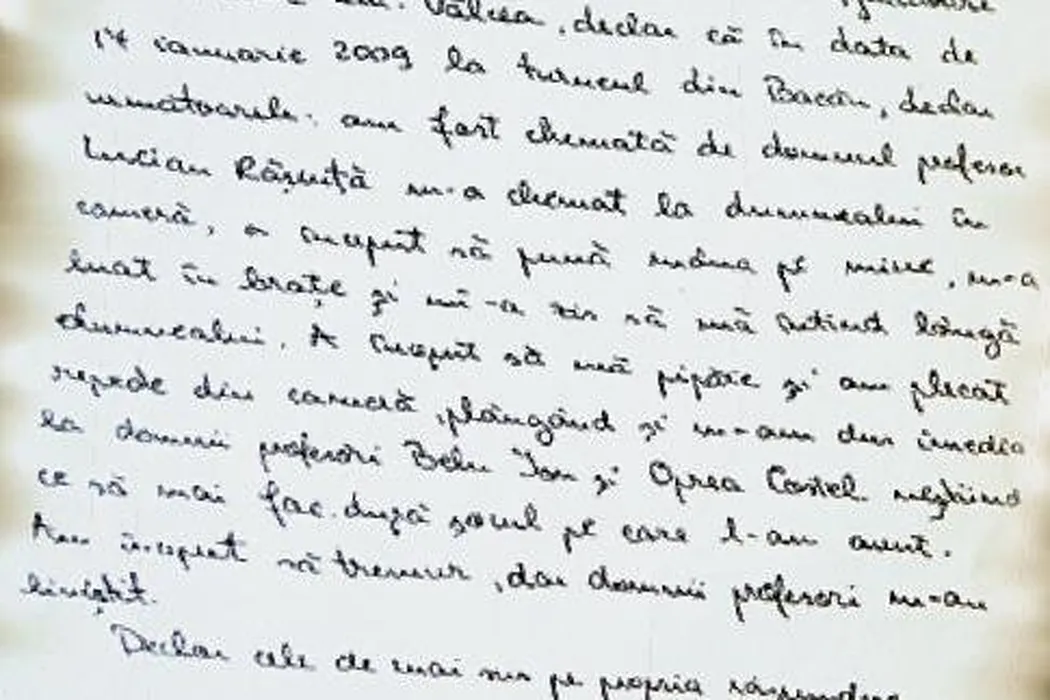 Vâlcea, declar că în data de
14 ianuarie 2009 la turneul din Bacău, declar
următoarele: am fost chemată de domnul profesor
Lucian Râșniță m-a chemat la dumnealui în
cameră, a început să pună mâna pe mine, m-a
luat în brațe și mi-a zis să mă întind lângă
dumnealui. A început să mă pipăie și am plecat
repede din cameră, plângând și m-am dus imedia
la domnii profesori Belu Ion și Oprea Costel neștiind
ce să mai fac după șocul pe care l-am avut.
Am început să tremur, dar domnii profesori m-au
liniștit.
Declar cele de mai sus pe propria răspundere